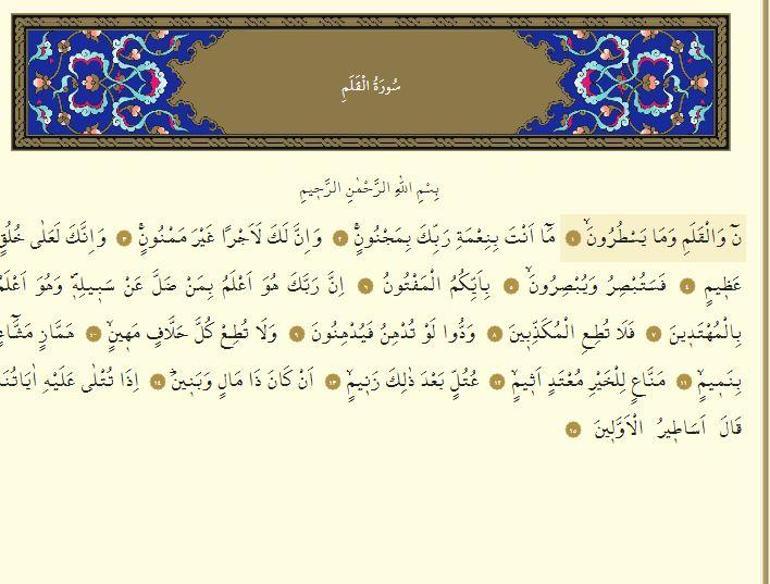 سُورَةُ الْقَلَمِ
بِسْمِ اللهِ الرَّحْمٰنِ الرَّحٖيمِ
نٓ وَالْقَلَمِ وَمَا يَسْطُرُونَۙ ﴿١﴾ مَٓا اَنْتَ بِنِعْمَةِ رَبِّكَ بِمَجْنُونٍۚ ﴿٢﴾ وَاِنَّ لَكَ لَاَجْرًا غَيْرَ مَمْنُونٍۚ ﴿٣﴾ وَاِنَّكَ لَعَلٰى خُلُقٍ
عَظٖيمٍ ﴿٤﴾ فَسَتُبْصِرُ وَيُبْصِرُونَۙ ﴿٥﴾ بِاَيِّكُمُ الْمَفْتُونُ ﴿٦﴾ اِنَّ رَبَّكَ هُوَ اَعْلَمُ بِمَنْ ضَلَّ عَنْ سَبٖيلِهٖۖ وَهُوَ اَعْلَمُ
بِالْمُهْتَدٖينَ ﴿٧﴾ فَلَا تُطِعِ الْمُكَذِّبٖينَ ﴿٨﴾ وَدُّوا لَوْ تُدْهِنُ فَيُدْهِنُونَ ﴿٩﴾ وَلَا تُطِعْ كُلَّ حَلَّافٍ مَهٖينٍۙ ﴿١٠﴾ هَمَّازٍ مَشَّٓاءٍ
بِنَمٖيمٍۙ ﴿١١﴾ مَنَّاعٍ لِلْخَيْرِ مُعْتَدٍ اَثٖيمٍۙ ﴿١٢﴾ عُتُلٍّ بَعْدَ ذٰلِكَ زَنٖيمٍۙ ﴿١٣﴾ اَنْ كَانَ ذَا مَالٍ وَبَنٖينَؕ ﴿١٤﴾ اِذَا تُتْلٰى عَلَيْهِ اٰيَاتُنَا
قَالَ اَسَاطٖيرُ الْاَوَّلٖينَ ﴿١٥﴾